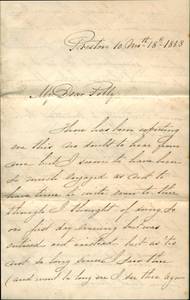 Preston 10 Mo. 18th. 1883
My Dear Polly
Thou has been expecting
me this, no doubt to hear from
me but I seem to have been
so much engaged as not to
have time to write even to thee
though I thought of doing so
on first day evening but was
and but as tis
not so long since I saw thee
(and wont be long ere I see thee again